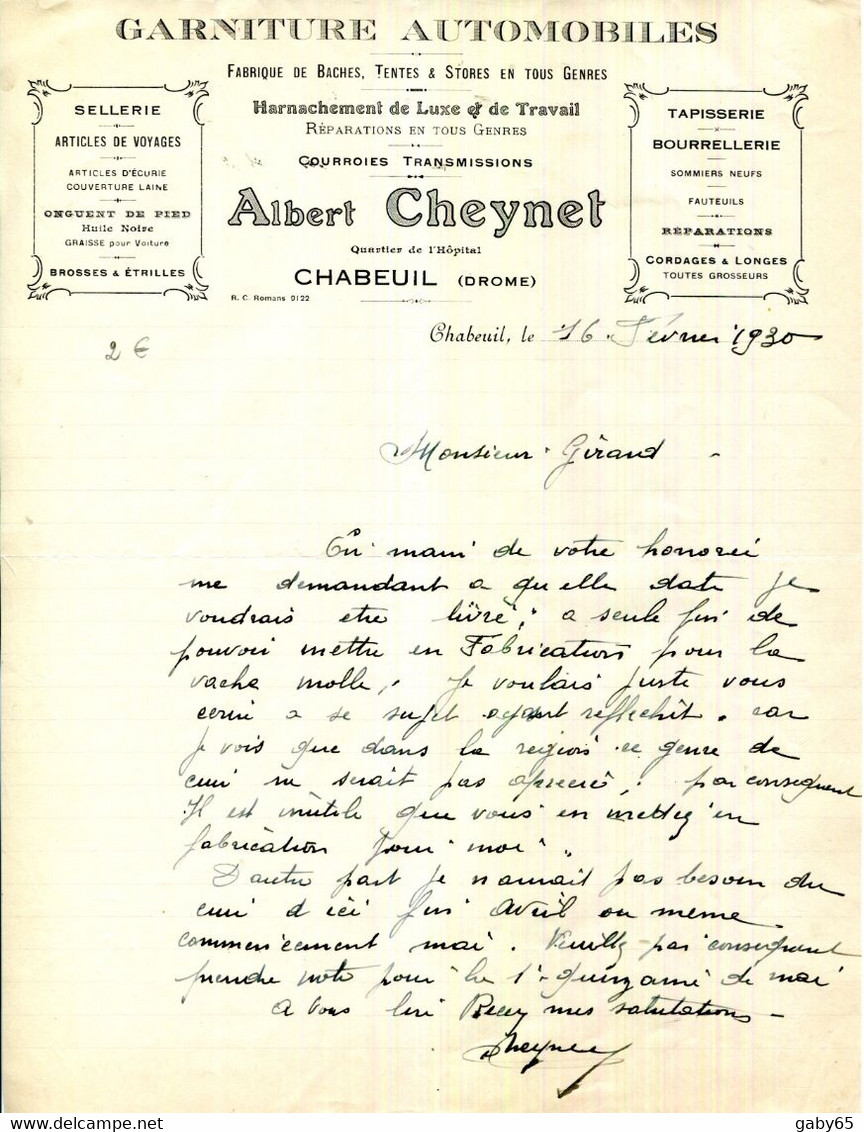 GARNITURE AUTOMOBILES
FABRIQUE DE BACHES, TENTES & STORES EN TOUS GENRES
Harnachement de Luxe & de Travail
RÉPARATIONS EN TOUS GENRES
COURROIES TRANSMISSIONS
Albert Cheynet
Quartier de l'Hôpital
CHABEUIL (DROME)
R. C. Romans 9122
SELLERIE
ARTICLES DE VOYAGES
ARTICLES D'ÉCURIE
COUVERTURE LAINE
ONGUENT DE PIED
Huile Noire
GRAISSE pour Voiture
BROSSES & ÉTRILLES
TAPISSERIE
BOURRELLERIE
SOMMIERS NEUFS
FAUTEUILS
RÉPARATIONS
CORDAGES & LONGES
TOUTES GROSSEURS
2 €
Chabeuil, le 16 Février 1930
Monsieur Girand
En main de votre honoreé
me demandant a quelle date je
voudrais etre livré, a seule fin de
pouvoir mettre en Fabrication pour la
vache molle, je voulais juste vous
ecrire a se sujet ayant reflechit. car
je vois que dans la region ce genre de
cuir ne serait pas aprecié, par consequent
Il est inutile que vous en mettez en
fabrication pour moi.
D'autre part je n'aurait pas besoin du
cuir d'ici fin Avril ou meme
commencement mai. Veuillez par consequent
prendre note pour la 1e quinzaine de mai
A vous lire Recez mes salutations
Cheynet
gaby65